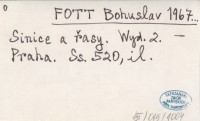 0
FOTT Bohuslav 1967...
Sinice a řasy. Wyd. 2. —
Praha. Ss. 520, il.